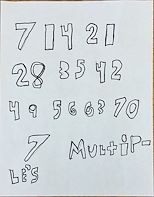 7 14 21
28 35 42
49 56 63 70
7 MultiP-
LE'S